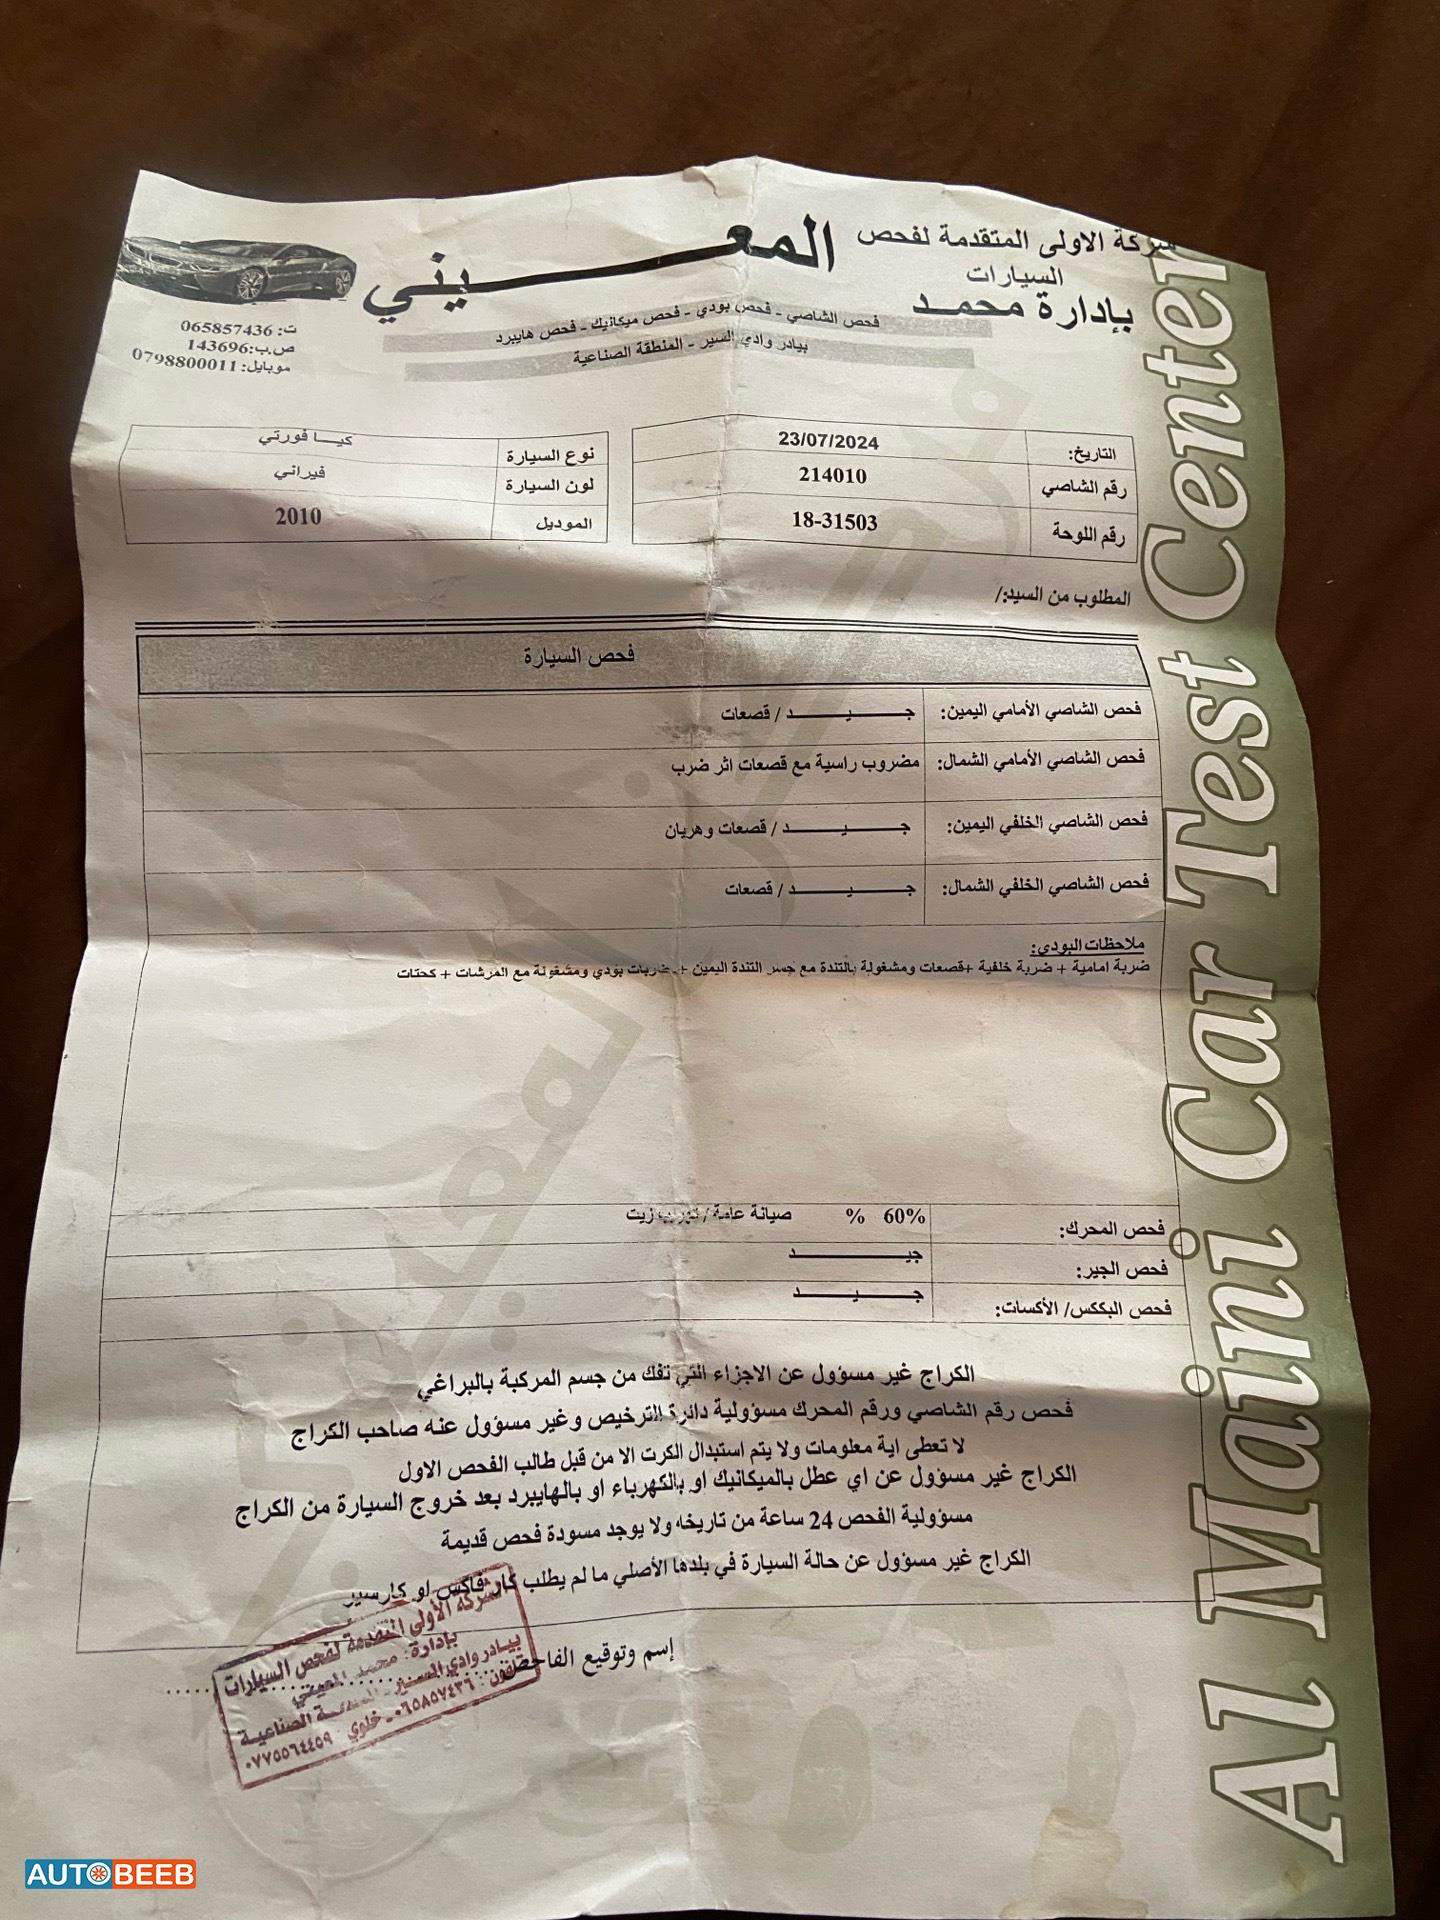 شركة الاولى المتقدمة لفحص
السيارات
بإدارة محمد
المعـــــــــــيني
فحص الشاصي - فحص بودي - فحص ميكانيك - فحص هايبرد
بيادر وادي السير - المنطقة الصناعية
ت: 065857436
ص.ب:143696
موبايل: 0798800011
التاريخ: 23/07/2024
رقم الشاصي 214010
رقم اللوحة 18-31503
نوع السيارة كيـا فورتي
لون السيارة فيراني
الموديل 2010
المطلوب من السيد:/
فحص السيارة
فحص الشاصي الأمامي اليمين: جـــــيـــــد / قصعات
فحص الشاصي الأمامي الشمال: مضروب راسية مع قصعات اثر ضرب
فحص الشاصي الخلفي اليمين: جـــــيـــــد / قصعات وهريان
فحص الشاصي الخلفي الشمال: جـــــيـــــد / قصعات
ملاحظات البودي:
ضربة امامية + ضربة خلفية +قصعات ومشغولة بالتندة مع جسر التندة اليمين + ضربات بودي ومشغولة مع المرشات + كحتات
فحص المحرك: 60% % صيانة عامة / تهريب زيت
فحص الجير: جيـــــــــد
فحص البككس/ الأكسات: جـــــيـــــد
الكراج غير مسؤول عن الاجزاء التي تفك من جسم المركبة بالبراغي
فحص رقم الشاصي ورقم المحرك مسؤولية دائرة الترخيص وغير مسؤول عنه صاحب الكراج
لا تعطى اية معلومات ولا يتم استبدال الكرت الا من قبل طالب الفحص الاول
الكراج غير مسؤول عن اي عطل بالميكانيك او بالكهرباء او بالهايبرد بعد خروج السيارة من الكراج
مسؤولية الفحص 24 ساعة من تاريخه ولا يوجد مسودة فحص قديمة
الكراج غير مسؤول عن حالة السيارة في بلدها الأصلي ما لم يطلب كار فاكس او كارسير
إسم وتوقيع الفاحص
الشركة الأولى المتقدمة لفحص السيارات
بإدارة: محمد المعيني
بيادر وادي السير - المنطقة الصناعية
تلفون: ٠٦٥٨٥٧٤٣٦ - خلوي ٠٧٧٥٥٦٤٤٥٩
Al Maini Car Test Center
مركز المعيني
AUTOBEEB